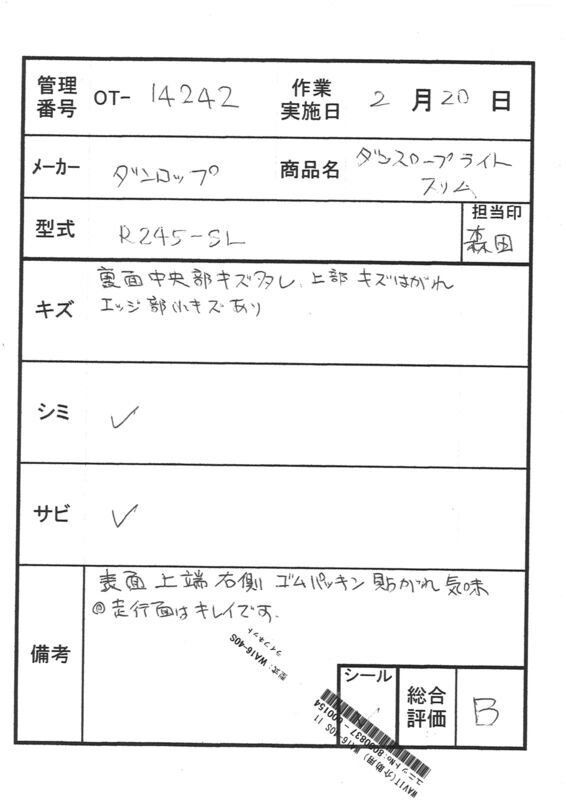 管理番号 OT- 14242 作業実施日 2 月 20 日
メーカー ダンロップ 商品名 ダンスロープライト
スリム
型式 R245-SL 担当印
森田
キズ 裏面中央部キズ多し、上部キズはがれ
エッジ部小キズあり
シミ ✓
サビ ✓
備考 表面 上端 右側 ゴムパッキン 貼がれ 気味
◎走行面はキレイです.
型式: WA16-40S
シール 総合評価 B
ユニットNo: 8080837 - 000154